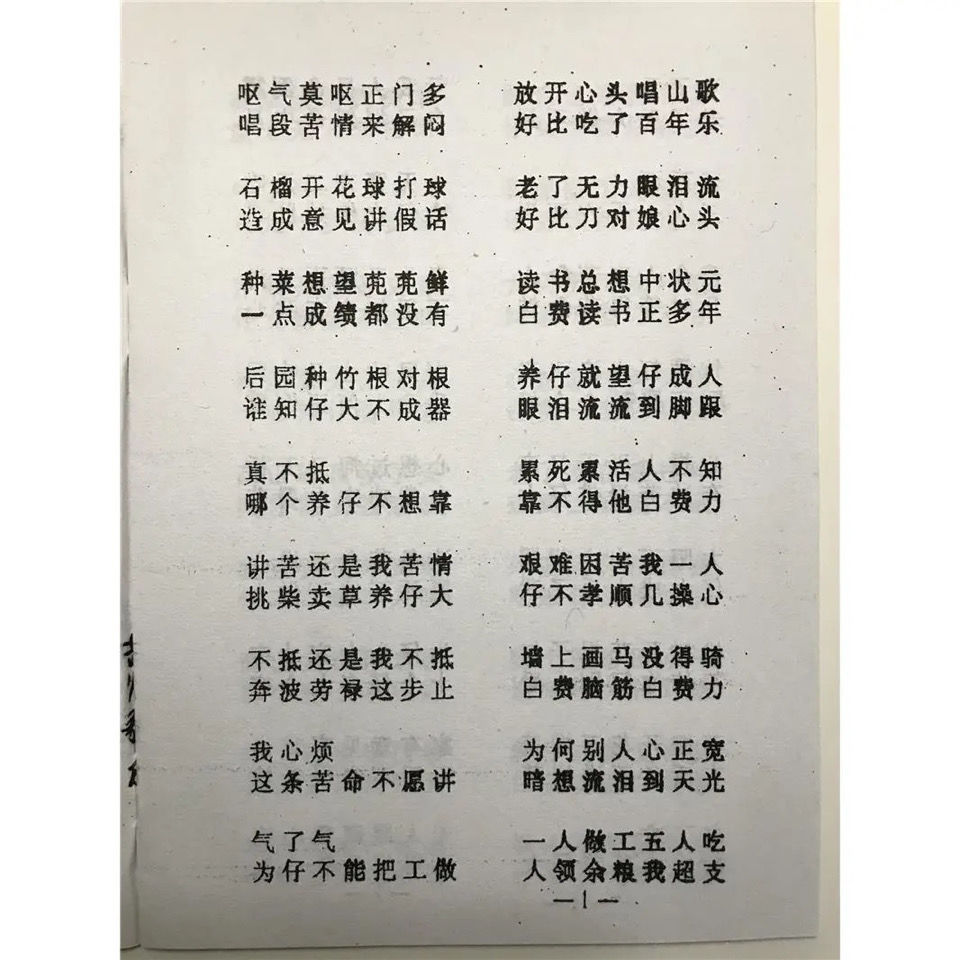 呕气莫呕正门多 放开心头唱山歌
唱段苦情来解闷 好比吃了百年乐
石榴开花球打球 老了无力眼泪流
造成意见讲假话 好比刀对娘心头
种菜想望蔸蔸鲜 读书总想中状元
一点成绩都没有 白费读书正多年
后园种竹根对根 养仔就望仔成人
谁知仔大不成器 眼泪流流到脚跟
真不抵 累死累活人不知
哪个养仔不想靠 靠不得他白费力
讲苦还是我苦情 艰难困苦我一人
挑柴卖草养仔大 仔不孝顺几操心
不抵还是我不抵 墙上画马没得骑
奔波劳禄这步止 白费脑筋白费力
我心烦 为何别人心正宽
这条苦命不愿讲 暗想流泪到天光
气了气 一人做工五人吃
为仔不能把工做 人领余粮我超支
—1—